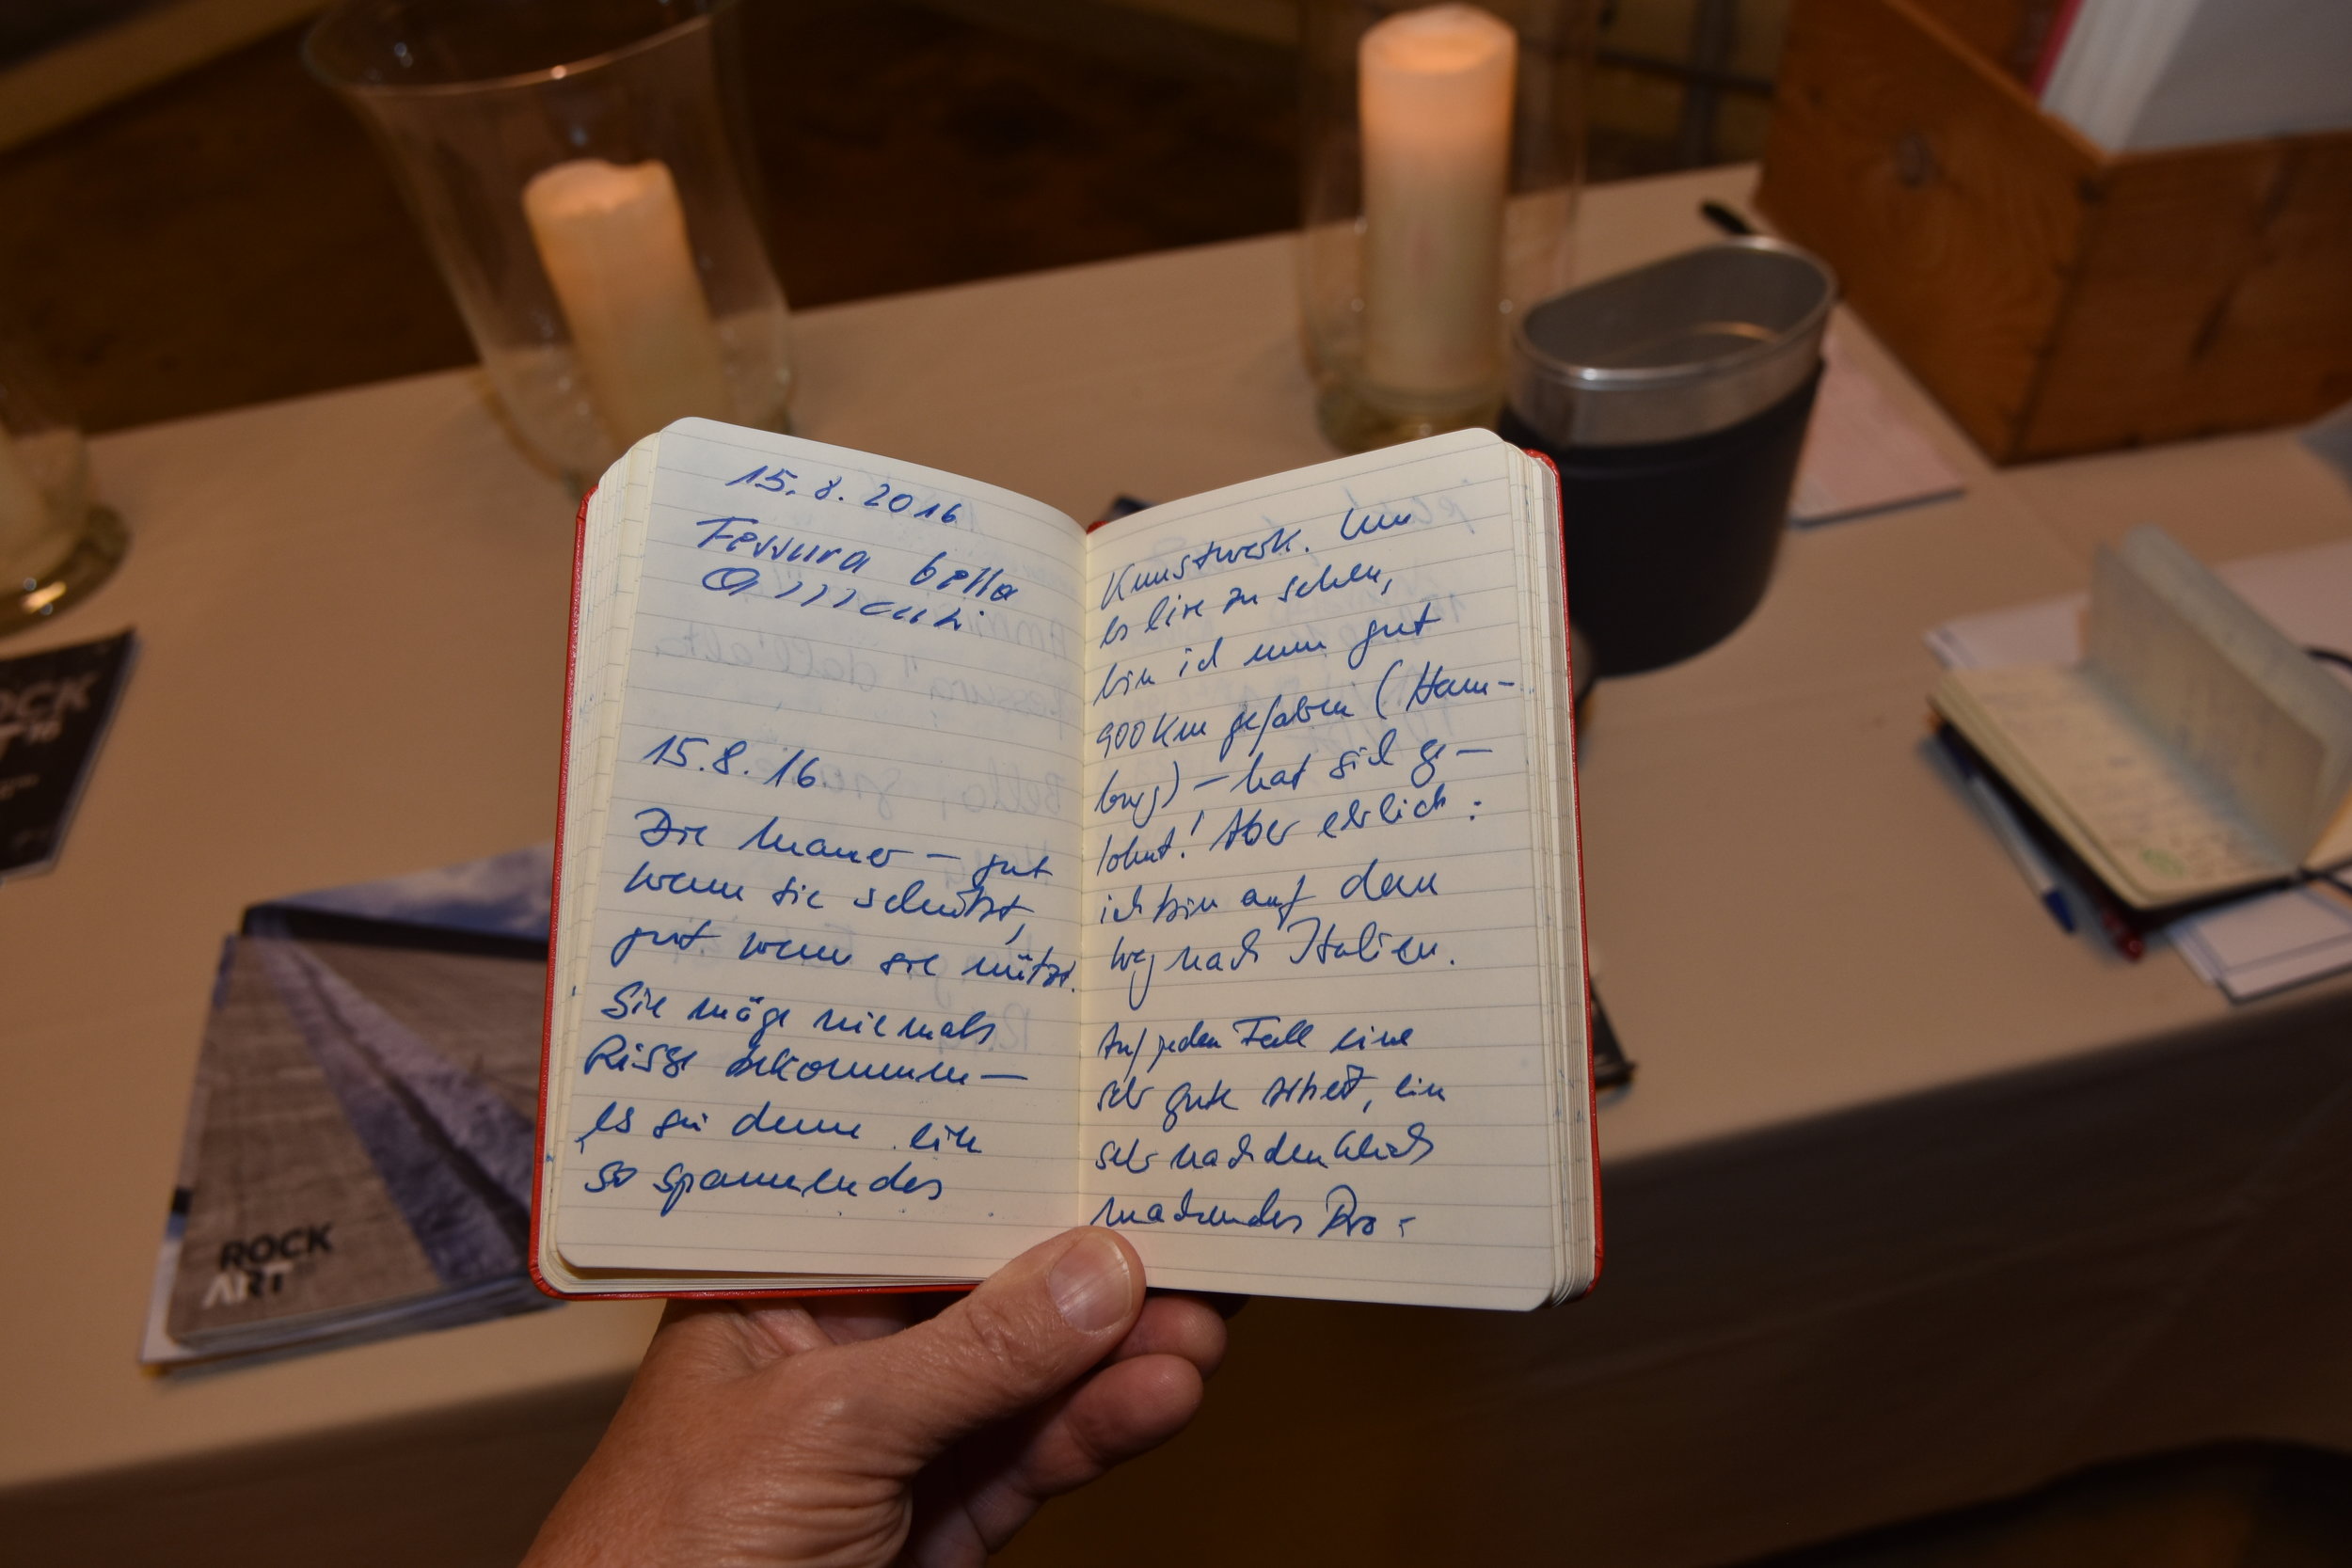 15. 8. 2016
Fessura bella
15. 8. 16.
Die Mauer – gut
wenn sie schützt,
gut wenn sie nützt.
Sie möge niemals
Risse bekommen –
es sei denn ein
so spannendes
Kunstwerk. Um
es live zu sehen,
bin ich nun gut
900 Km gefahren (Ham-
burg) – hat sich ge-
lohnt! Aber ehrlich:
ich bin auf dem
Weg nach Italien.
Auf jeden Fall eine
sehr gute Arbeit, ein
sehr nachdenklich
machendes Pro-
ROCK
ART